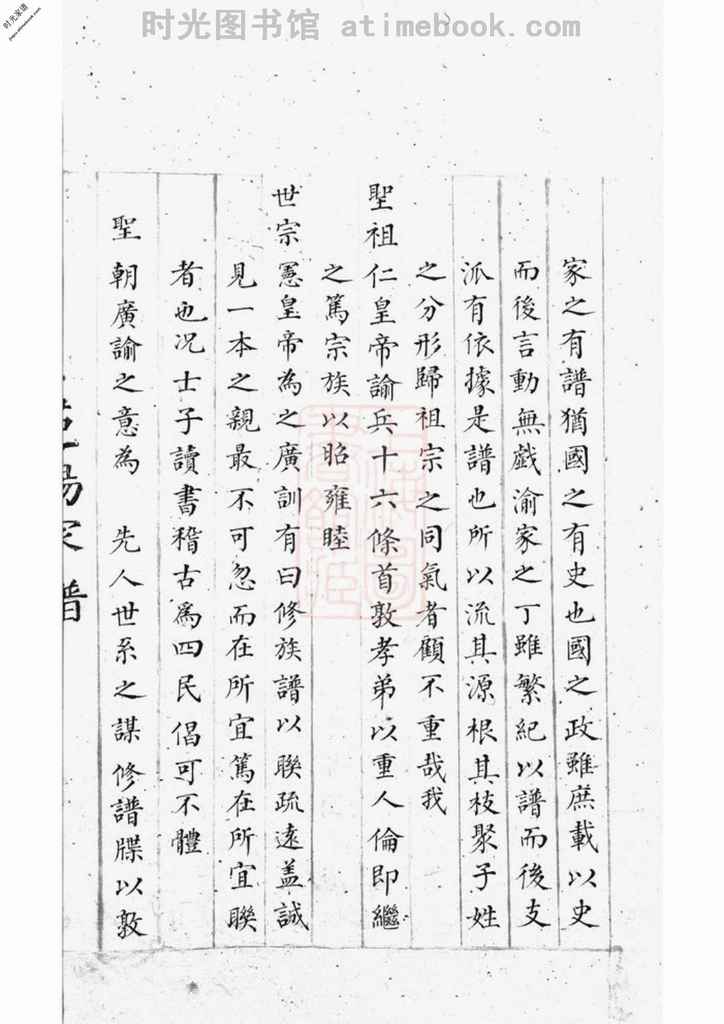 时光图书馆 atimebook.com
时光家谱
家之有譜猶國之有史也國之政雖庶載以史
而後言動無戲渝家之丁雖繁紀以譜而後支
派有依據是譜也所以流其源根其枝聚子姓
之分形歸祖宗之同氣者顧不重哉我
聖祖仁皇帝諭兵十六條首敦孝弟以重人倫即繼
之篤宗族以昭雍睦
世宗憲皇帝為之廣訓有曰修族譜以聯疏遠盖誠
見一本之親最不可忽而在所宜篤在所宜聯
者也况士子讀書稽古爲四民倡可不體
聖朝廣諭之意為 先人世系之謀修譜牒以敦